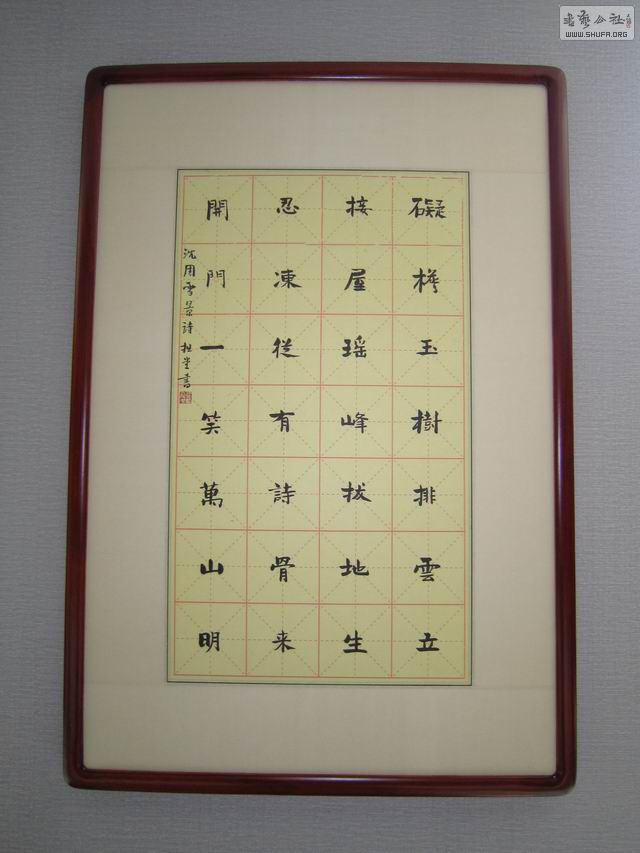 礙檐玉樹排雲立
接屋瑶峰拔地生
忍凍從有詩骨来
開門一笑萬山明
沈用雪景詩 拙堂書
WWW.SHUFA.ORG